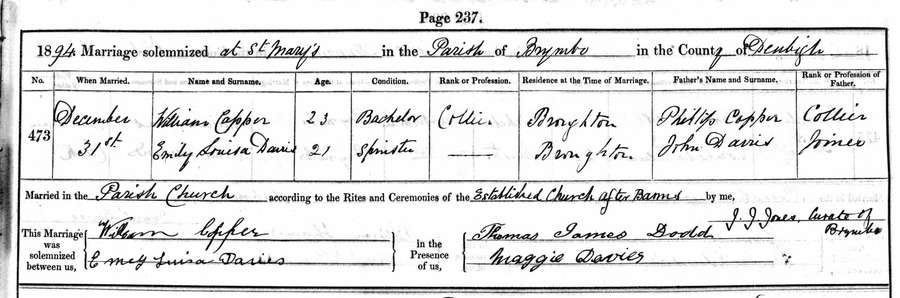 Page 237.
1894. Marriage solemnized at St Mary's in the Parish of Brymbo in the County of Denbigh
No. When Married. Name and Surname. Age. Condition. Rank or Profession. Residence at the Time of Marriage. Father's Name and Surname. Rank or Profession of Father.
473 December 31st
William Copper 23 Bachelor Collier Broughton Phillip Copper Collier
Emily Louisa Davies 21 Spinster — Broughton John Davies Joiner
Married in the Parish Church according to the Rites and Ceremonies of the Established Church after Banns by me,
J. J. Jones, Curate of Brymbo
This Marriage was solemnized between us, William Copper
Emely Luisa Davies
in the Presence of us, Thomas James Dodd
Maggie Davies